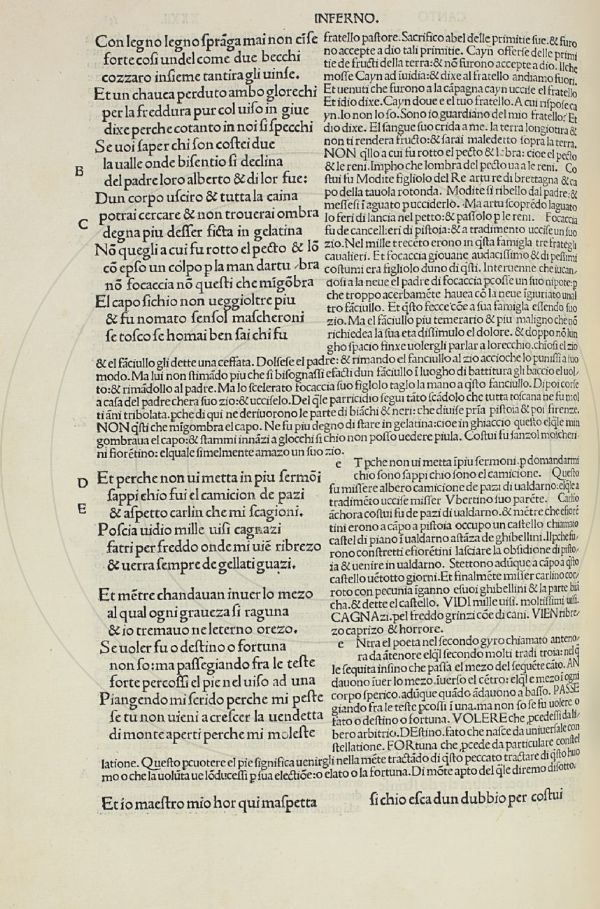 INFERNO.
Con legno legno sprãga mai non cĩse
forte cosi undel come due becchi
cozzaro insieme tantira gli uinse.
Et un chauea perduto ambo glorechi
per la freddura pur col uiso in giue
dixe perche cotanto in noi si specchi
Se uoi saper chi son costei due
la ualle onde bisentio si declina
B
del padre loro alberto & di lor fue:
Dun corpo usciro & tutta la caina
potrai cercare & non trouerai ombra
C
degna piu desser ficta in gelatina
Nõ quegli a cui fu rotto el pecto & lõ
cõ epso un colpo p la man dartu bra
nõ focaccia nõ questi che migõbra
El capo sichio non ueggioltre piu
& fu nomato sensol mascheroni
se tosco se homai ben sai chi fu
fratello pastore. Sacrifico abel delle primitie sue. & furo
no accepte a dio tali primitie. Cayn offerse delle primi
tie de fructi della terra: & nõ furono accepte a dio. Ilche
mosse Cayn ad ĩuidia: & dixe al fratello andiamo fuori.
Et uenuti che furono a la cãpagna cayn uccise el fratello
Et idio dixe. Cayn doue e el tuo fratello. A cui rispose ca
yn. Io non lo so. Sono io guardiano del mio fratello: Et
dio dixe. El sangue suo crida a me. la terra
non ti rendera fructo: & sarai maledetto sopra la terra.
NON q̃llo a cui fu rotto el pecto & lombra: cioe el pecto
& le reni. Impho che lombra del pecto ua a le reni. Co
stui fu Modite figliolo del Re arture di brettagna & ca
po della tauola rotonda. Modite si ribello dal padre: &
messesi ĩ aguato p ucciderlo. Ma artu scoprẽdo laguato
lo feri di lancia nel petto: & passolo p le reni. Focaccia
fu de cancellieri di pistoia: & a tradimento uccise un suo
zio. Nel mille trecẽto erono in q̃sta famigla tre frategli
caualieri. Et focaccia giouane audacissimo & di pessimi
costumi era figliolo duno di q̃sti. Interuenne che iucan
dosi a la neue el padre di focaccia pcosse un suo nipote: p
che troppo acerbamẽte hauea cõ la neue ĩguriato unal
tro fãciullo. Et q̃sto fecce cõe a sua famigla essendo suo
zio. Ma el fãciullo piu temerario & piu maligno che nõ
richiedea la sua eta dissimulo el dolore. & doppo nõ lun
gho spacio finxe uolergli parlar a lorecchio, chiosi el zio
& el fãciullo gli dette una ceffata. Dolsese el padre: & rimando el fanciullo al zio accioche lo punissi a suo
modo. Ma lui non stimãdo piu che si bisognassi efacti dun fãciullo ĩ luogho di battitura gli baccio el uol
to: & rimãdollo al padre. Ma lo scelerato focaccia suo figlolo taglo la mano a q̃sto fanciullo. Di poi corse
a casa del padre chera suo zio: & ucciselo. Del q̃le parricidio segui tãto scãdolo che tutta toscana ne fu mol
ti ãni tribolata. pche di qui ne deriuorono le parte di biãchi & neri: che diuise pria pistoia & poi firenze.
NON q̃sti che migombra el capo. Ne fu piu degno di stare in gelatina: cioe in ghiaccio questo elq̃le min
gombraua el capo: & stammi innãzi a glocchi si chio non posso uedere piula. Costui fu sanzol mascheri
ni fiorẽtino: elquale similmente amazo un suo zio.
D
Et perche non ui metta in piu sermõi
sappi chio fui el camicion de pazi
E
& aspetto carlin che mi scagioni.
Poscia uidio mille uisi cagnazi
fatri per freddo onde mi uiẽ ribrezo
& uerra sempre de gellati guazi.
Et mẽtre chandauan inuer lo mezo
al qual ogni graueza si raguna
& io tremauo ne leterno orezo.
Se uoler fu o destino o fortuna
non so: ma passegiando fra le teste
forte percossi el pie nel uiso ad una
Piangendo mi scrido perche mi peste
se tu non uieni a crescer la uendetta
di monte aperti perche mi moleste
e Tpche non ui metta ĩpiu sermoni. p domandarmi
chio sono sappi chio sono el camicione. Questo
fu missere albero camicione de pazi di ualdarno: elq̃le a
tradimẽto uccise misser Vbertino suo parẽte. Carlin
ãchora costui fu de pazi di ualdarno. & mẽtre che efiorẽ
tini erono a cãpo a pistoia occupo un castello chiamato
castel di piano ĩ ualdarno a stãza de ghibellini. Ilpche fu
rono constretti efiorẽtini lasciare la obsidione di pisto
ia & uenire in ualdarno. Stettono adũque a cãpo a q̃sto
castello uẽtotto giorni. Et finalmẽte misser carlino cor
roto con pecunia ĩganno esuoi ghibellini & la parte biã
cha. & dette el castello. VIDI mille uisi. moltissimi uisi.
CAGNAzi. pel freddo grinzi cõe di cani. VIEN ribre
zo caprizo & horrore.
e Ntra el poeta nel secondo gyro chiamato anteno
ra da ãtenore elq̃l secondo molti tradi troia: nel q̃
le sequita insino che passa el mezo del seq̃uẽte cãto. AN
dauono ĩuer lo mezo. ĩuerso el cẽtro: elq̃l e mezo ĩ ogni
corpo sperico. adũque quãdo ãdauono a basso. PASSE
giando fra le teste pcossi ĩ una. ma non so se fu uolere o
fato o destino o fortuna. VOLERE che pcedessi da li
bero arbitrio. DEstino. fato che nasce da uniuersale con
stellatione. FORtuna che pcede da particulare constel
latione. Questo pcuotere el pie significa uenirgli nella mẽte tractãdo di q̃sto peccato tractare di q̃sto huo
mo o che la uolũta ue lõducessi p sua electiõe: o el ato o la fortuna. Di mõte apto del q̃le diremo disotto.
Et io maestro mio hor qui maspetta
si chio esca dun dubbio per costui